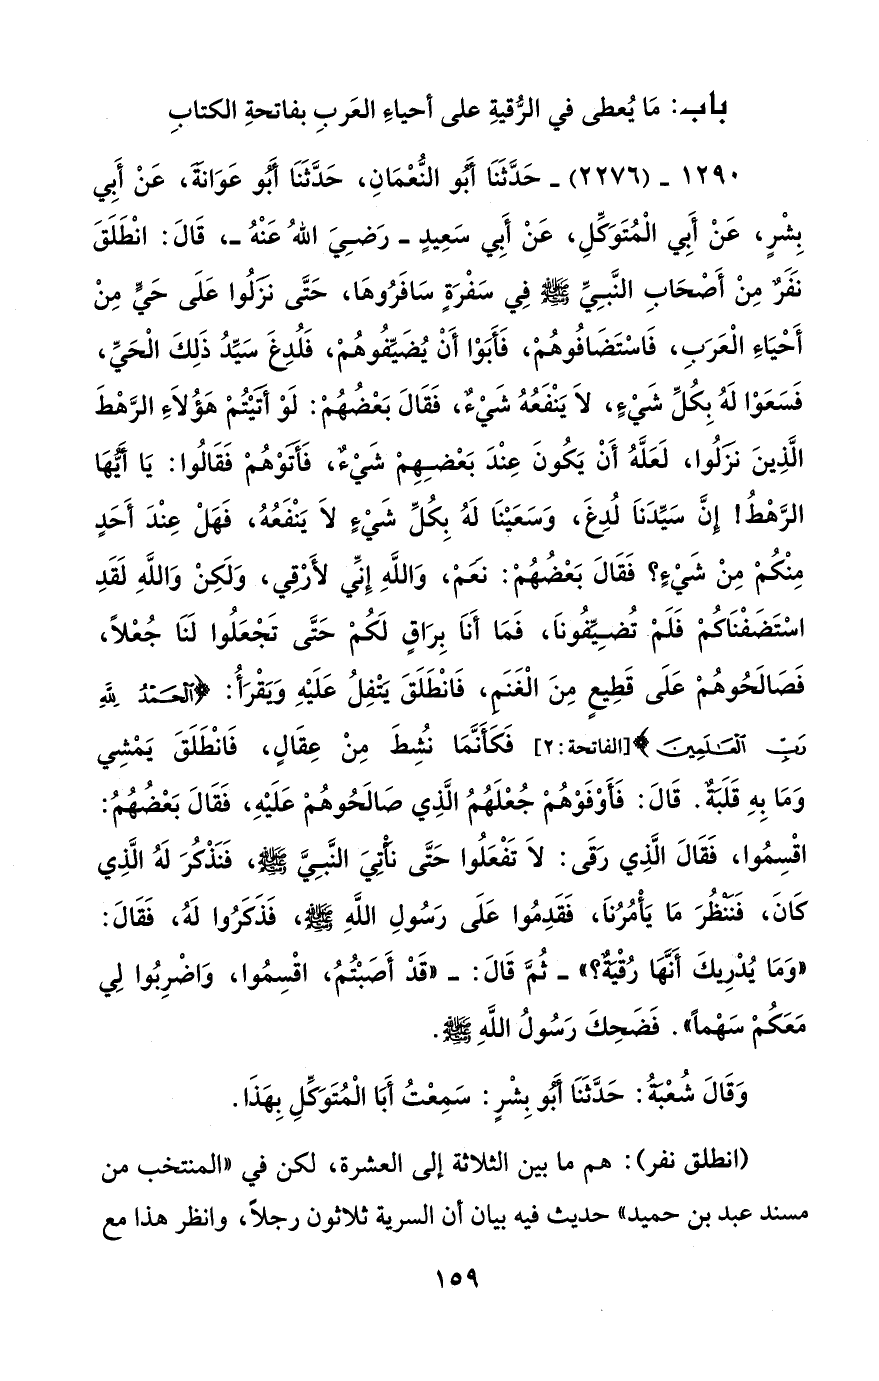 باب: مَا يُعطى في الرُّقيةِ على أحياءِ العَربِ بفاتحةِ الكتابِ
١٢٩٠ - (٢٢٧٦) - حَدَّثَنَا أَبُو النُّعْمَانِ، حَدَّثَنَا أَبُو عَوَانَةَ، عَنْ أَبِي
بِشْرٍ، عَنْ أَبِي الْمُتَوَكِّلِ، عَنْ أَبِي سَعِيدٍ - رَضِيَ اللهُ عَنْهُ -، قَالَ: انْطَلَقَ
نَفَرٌ مِنْ أَصْحَابِ النَّبِيِّ ﷺ فِي سَفْرَةٍ سَافَرُوهَا، حَتَّى نَزَلُوا عَلَى حَيٍّ مِنْ
أَحْيَاءِ الْعَرَبِ، فَاسْتَضَافُوهُمْ، فَأَبَوْا أَنْ يُضَيِّفُوهُمْ، فَلُدِغَ سَيِّدُ ذَلِكَ الْحَيِّ،
فَسَعَوْا لَهُ بِكُلِّ شَيْءٍ، لاَ يَنْفَعُهُ شَيْءٌ، فَقَالَ بَعْضُهُمْ: لَوْ أَتَيْتُمْ هَؤُلاَءِ الرَّهْطَ
الَّذِينَ نَزَلُوا، لَعَلَّهُ أَنْ يَكُونَ عِنْدَ بَعْضِهِمْ شَيْءٌ، فَأَتَوْهُمْ فَقَالُوا: يَا أَيُّهَا
الرَّهْطُ! إِنَّ سَيِّدَنَا لُدِغَ، وَسَعَيْنَا لَهُ بِكُلِّ شَيْءٍ لاَ يَنْفَعُهُ، فَهَلْ عِنْدَ أَحَدٍ
مِنْكُمْ مِنْ شَيْءٍ؟ فَقَالَ بَعْضُهُمْ: نَعَمْ، وَاللَّهِ إِنِّي لأَرْقِي، وَلَكِنْ وَاللَّهِ لَقَدِ
اسْتَضَفْنَاكُمْ فَلَمْ تُضَيِّفُونَا، فَمَا أَنَا بِرَاقٍ لَكُمْ حَتَّى تَجْعَلُوا لَنَا جُعْلاً،
فَصَالَحُوهُمْ عَلَى قَطِيعٍ مِنَ الْغَنَمِ، فَانْطَلَقَ يَتْفِلُ عَلَيْهِ وَيَقْرَأُ: ﴿ٱلْحَمْدُ لِلَّهِ
رَبِّ ٱلْعَٰلَمِينَ﴾ [الفاتحة: ٢] فَكَأَنَّمَا نُشِطَ مِنْ عِقَالٍ، فَانْطَلَقَ يَمْشِي
وَمَا بِهِ قَلَبَةٌ. قَالَ: فَأَوْفَوْهُمْ جُعْلَهُمُ الَّذِي صَالَحُوهُمْ عَلَيْهِ، فَقَالَ بَعْضُهُمُ:
اقْسِمُوا، فَقَالَ الَّذِي رَقَى: لاَ تَفْعَلُوا حَتَّى نَأْتِيَ النَّبِيَّ ﷺ، فَنَذْكُرَ لَهُ الَّذِي
كَانَ، فَنَنْظُرَ مَا يَأْمُرُنَا، فَقَدِمُوا عَلَى رَسُولِ اللَّهِ ﷺ، فَذَكَرُوا لَهُ، فَقَالَ:
«وَمَا يُدْرِيكَ أَنَّهَا رُقْيَةٌ؟» - ثُمَّ قَالَ: - «قَدْ أَصَبْتُمُ، اقْسِمُوا، وَاضْرِبُوا لِي
مَعَكُمْ سَهْماً». فَضَحِكَ رَسُولُ اللَّهِ ﷺ.
وَقَالَ شُعْبَةُ: حَدَّثَنَا أَبُو بِشْرٍ: سَمِعْتُ أَبَا الْمُتَوَكِّلِ بِهَذَا.
(انطلق نفر): هم ما بين الثلاثة إلى العشرة، لكن في «المنتخب من
مسند عبد بن حميد» حديث فيه بيان أن السرية ثلاثون رجلاً، وانظر هذا مع
١٥٩